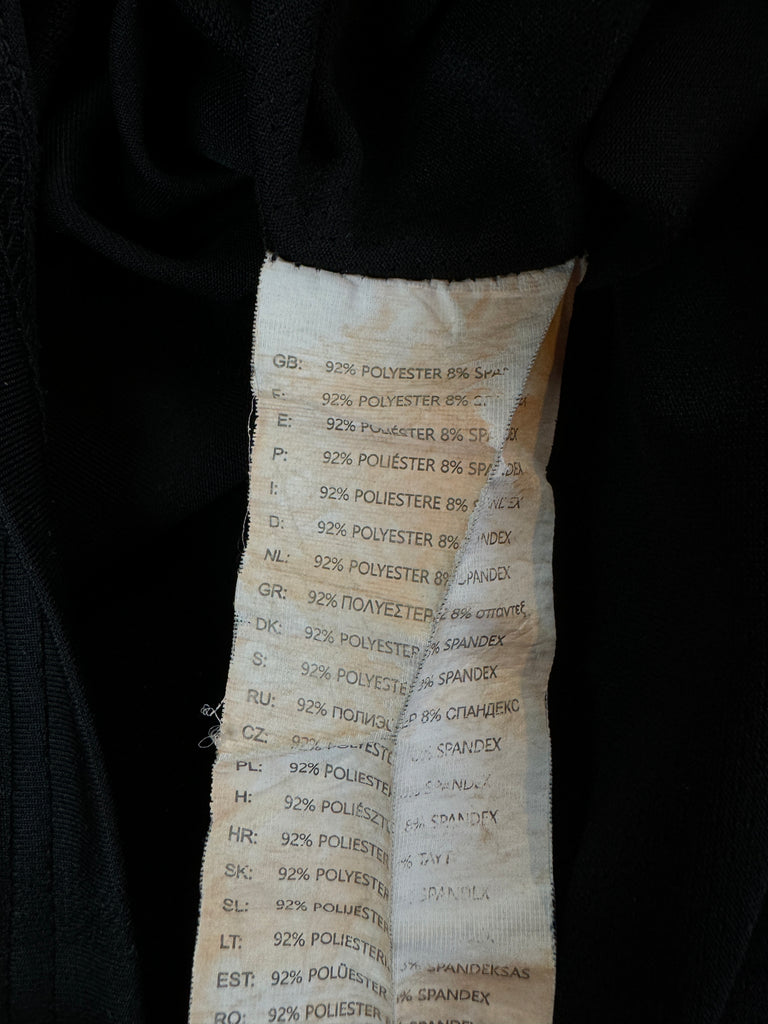 GB: 92% POLYESTER 8%
F: 92% POLYESTER 8%
E: 92% POLIÉSTER 8% SPANDEX
P: 92% POLIÉSTER 8% SPANDEX
I: 92% POLIESTERE 8% SPANDEX
D: 92% POLYESTER 8% SPANDEX
NL: 92% POLYESTER 8% SPANDEX
GR: 92% ΠΟΛΥΕΣΤΕΡ 8% σπάντεξ
DK: 92% POLYESTER 8% SPANDEX
S: 92% POLYESTER 8% SPANDEX
RU: 92% 8% СПАНДЕКС
CZ: 92% POLYESTER 8% SPANDEX
PL: 92% POLIESTER 8% SPANDEX
H: 92% 8% SPANDEX
HR: 92% POLIESTER
SK: 92% POLYESTER SPANDEX
SL: 92% POLIJESTER
LT: 92% 8% SPANDEKSAS
EST: 92% POLÜESTER 8% SPANDEX
RO: 92% POLIESTER